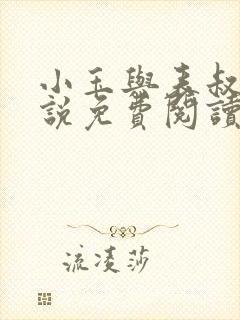 小玉與表叔
說免費閱讀
流凌莎